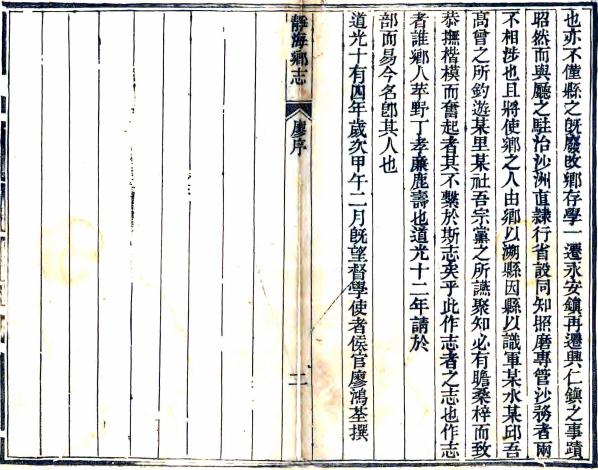 也亦不僅縣之旣廢改鄉存學一遷永安鎭再遷興仁鎭之事蹟
昭然而與廳之駐治沙洲直隸行省設同知照磨專管沙務者兩
不相涉也且將使鄉之人由鄉以溯縣因縣以識軍某水某邱吾
高曾之所釣遊某里某社吾宗黨之所讌聚知必有瞻桑梓而致
恭撫楷模而奮起者其不繫於斯志矣乎此作志者之志也作志
者誰鄉人莘野丁孝廉鹿壽也道光十二年請於
部而易今名卽其人也
道光十有四年歲次甲午二月旣望督學使者侯官廖鴻荃撰
靜海鄉志
廖序
二